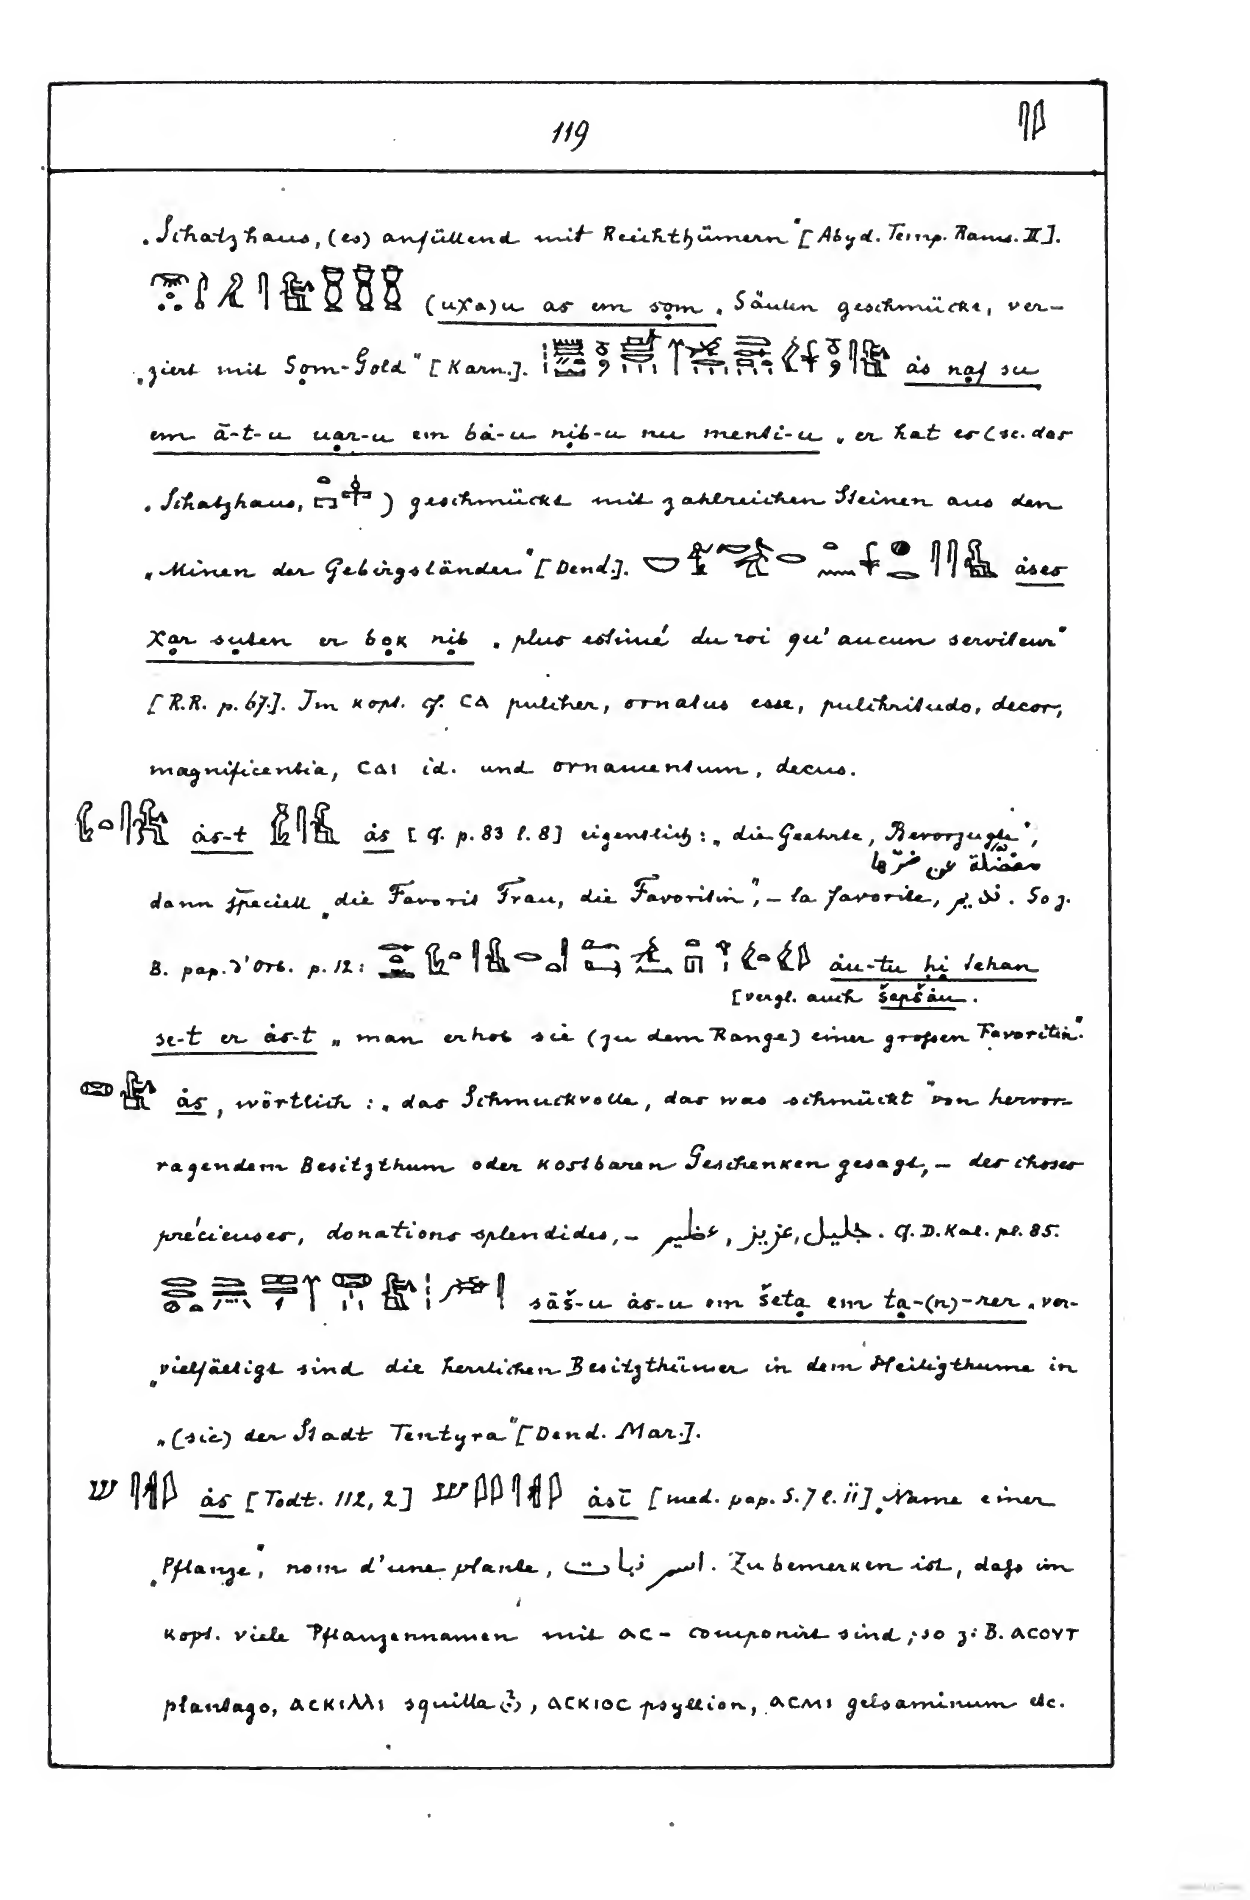 119
„Schatzhaus, (es) anfüllend mit Reichthümern“ [Abyd. Temp. Rams. II].
(uχa)u as em sọm „Säulen geschmückt, ver-
„ziert mit Sọm-Gold“ [Karn.]. ȧs nạf su
em ā-t-u uạr-u em bȧ-u nịb-u nu menti-u „er hat es (sc. das
„Schatzhaus, ) geschmückt mit zahlreichen Steinen aus den
„Minen der Gebirgsländer“ [Dend.]. ȧses
χạr sụten er bọk nịb „plus estimé du roi qu'aucun serviteur“
[R.R. p. 67.]. Im kopt. cf. ⲥⲁ pulcher, ornatus esse, pulchritudo, decor,
magnificentia, ⲥⲁⲓ id. und ornamentum, decus.
ȧs-t ȧs [cf. p. 83 l. 8] eigentlich: „die Geehrte, Bevorzugte“,
مفضلة عن ضرّتها
dann speciell „die Favorit Frau, die Favoritin“, – la favorite, . So z.
B. pap. d'Orb. p. 12: ȧu-tu ḥị tehan
[vergl. auch šepšȧu.
se-t er ȧs-t „man erhob sie (zu dem Range) einer großen Favoritin“.
ȧs, wörtlich: „das Schmuckvolle, das was schmückt“ von hervor-
ragendem Besitzthum oder kostbaren Geschenken gesagt, – des choses
précieuses, donations splendides, – جليل, عزيز, عظيم. cf. D. Kal. pl. 85.
sāš-u ȧs-u em šetạ em tạ-(n)-rer „ver-
„vielfältigt sind die herrlichen Besitzthümer in dem Heiligthume in
„(sic) der Stadt Tentyra“ [Dend. Mar.].
ȧs [Todt. 112, 2] ȧsī [med. pap. S. 7 l. ii] „Name einer
„Pflanze“, nom d'une plante, اسم نبات. Zu bemerken ist, daß im
kopt. viele Pflanzennamen mit ⲁⲥ- componirt sind; so z. B. ⲁⲥⲟⲩⲧ
plantago, ⲁⲥⲕⲓⲗⲗⲓ squilla (?), ⲁⲥⲕⲓⲟⲥ psyllion, ⲁⲥⲙⲓ gelsaminum etc.